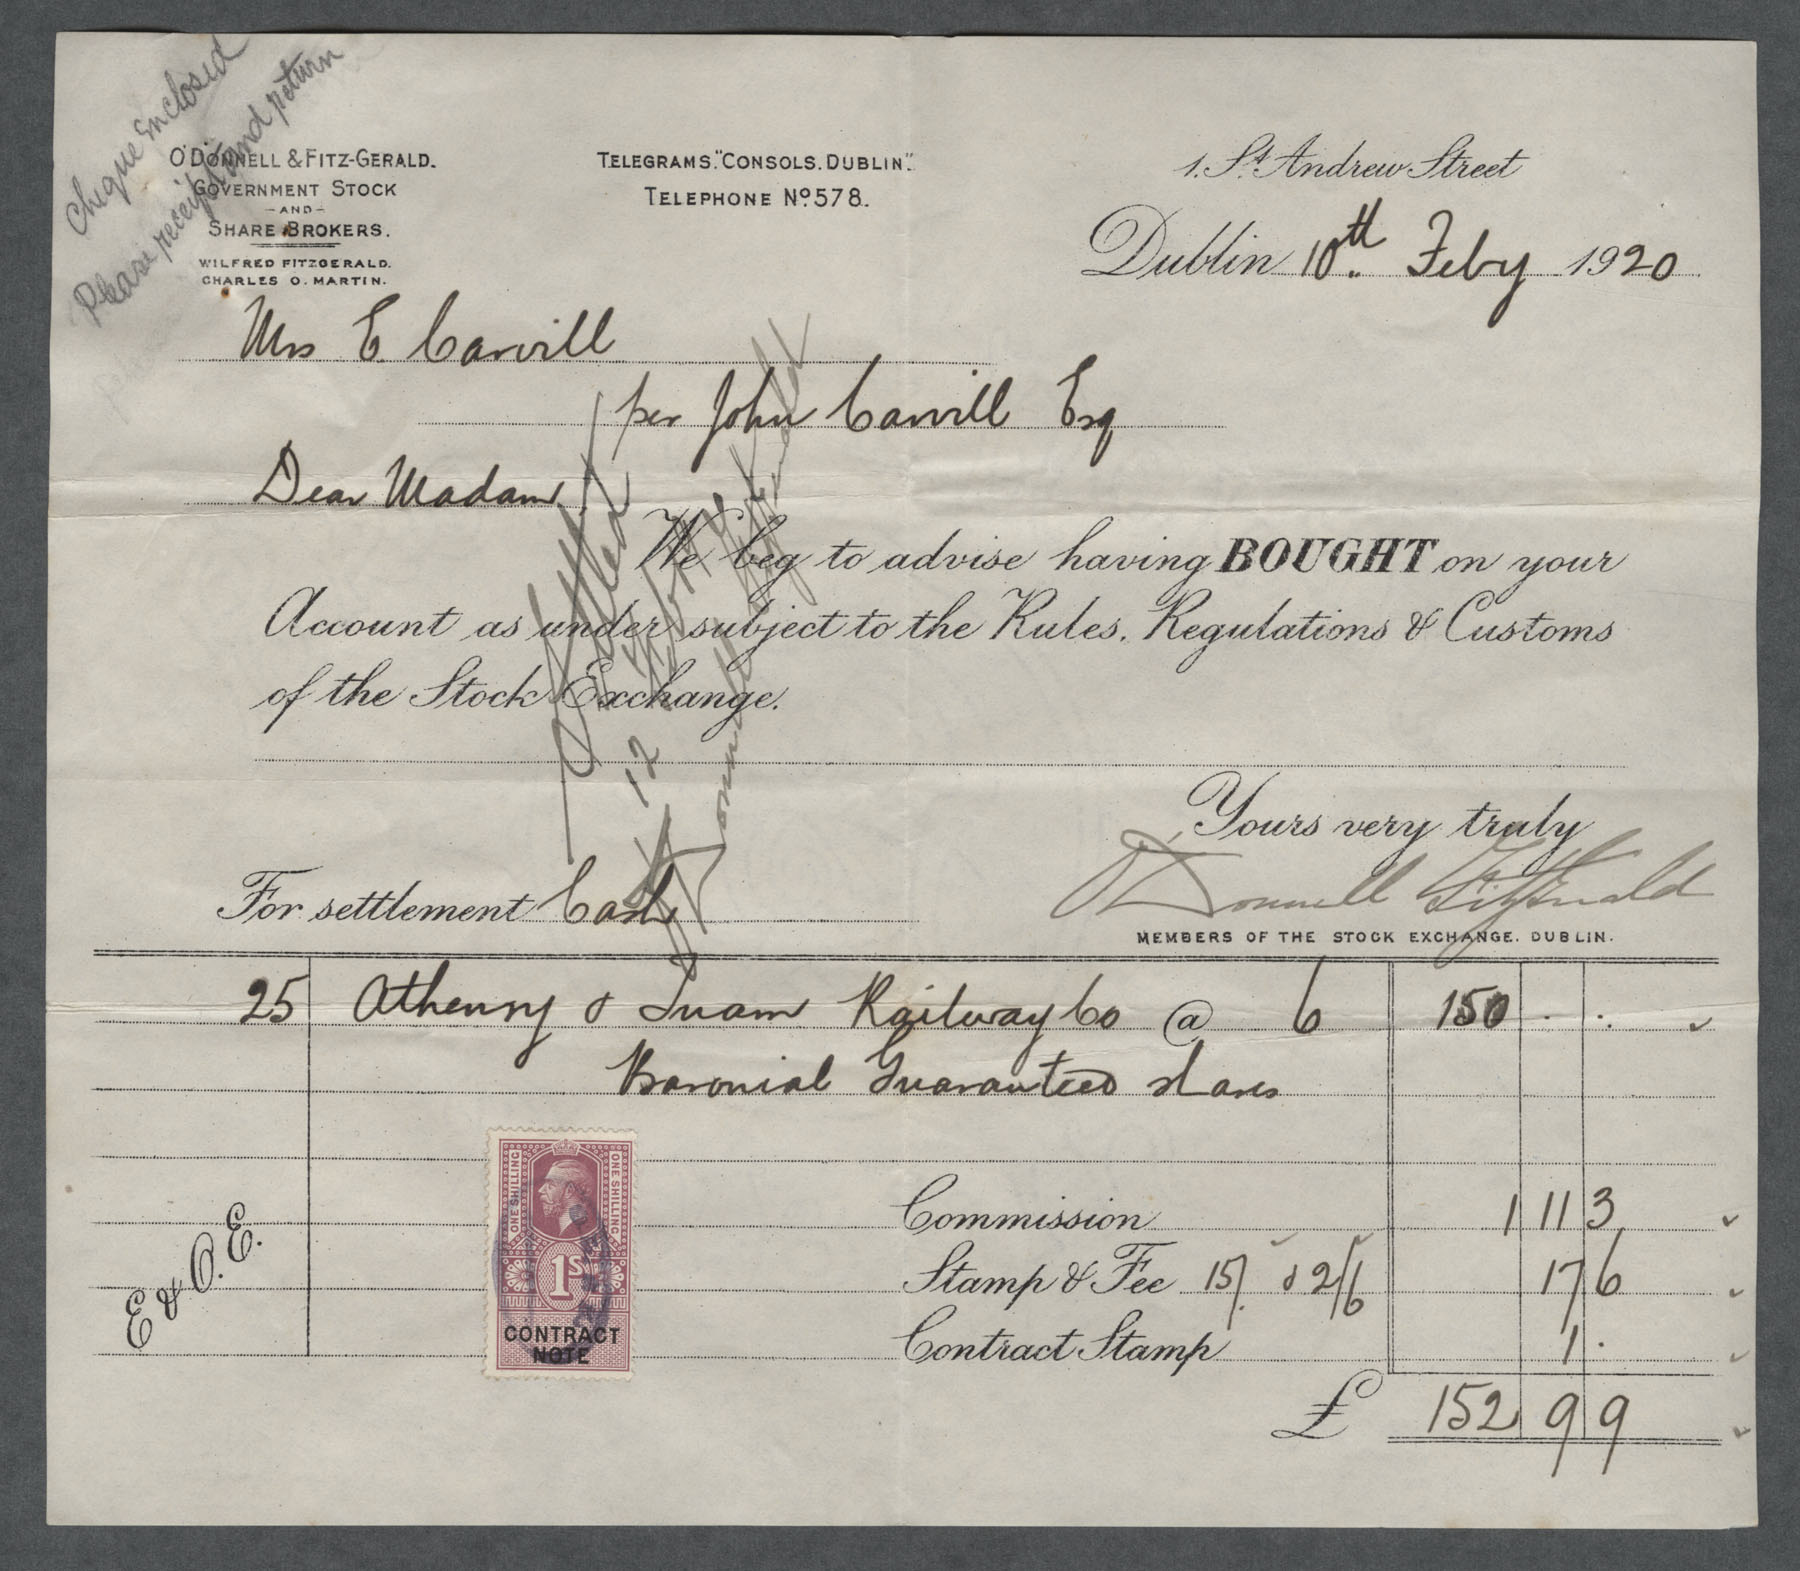 Cheque Enclosed
Please receipt and return
O'DONNELL & FITZ-GERALD.
GOVERNMENT STOCK
-AND-
SHARE BROKERS.
WILFRED FITZGERALD.
CHARLES O. MARTIN.
TELEGRAMS. "CONSOLS. DUBLIN".
TELEPHONE No. 578.
1. St. Andrew Street
Dublin 10th Feby 1920
Mrs E. Carvill
per John Carvill Esq
Dear Madam
We beg to advise having BOUGHT on your
Account as under subject to the Rules, Regulations & Customs
of the Stock Exchange.
Settled
12
O'Donnell Fitzgerald
Yours very truly
O'Donnell Fitzgerald
MEMBERS OF THE STOCK EXCHANGE. DUBLIN.
For settlement Cash
25 Athenry & Tuam Railway Co @ 6 150 . .
Baronial Guaranteed shares
Commission 1 11 3
Stamp & Fee 15/. & 2/6 17 6
Contract Stamp 1 .
£ 152 9 9
E & O. E.
ONE SHILLING
ONE SHILLING
1S
CONTRACT
NOTE